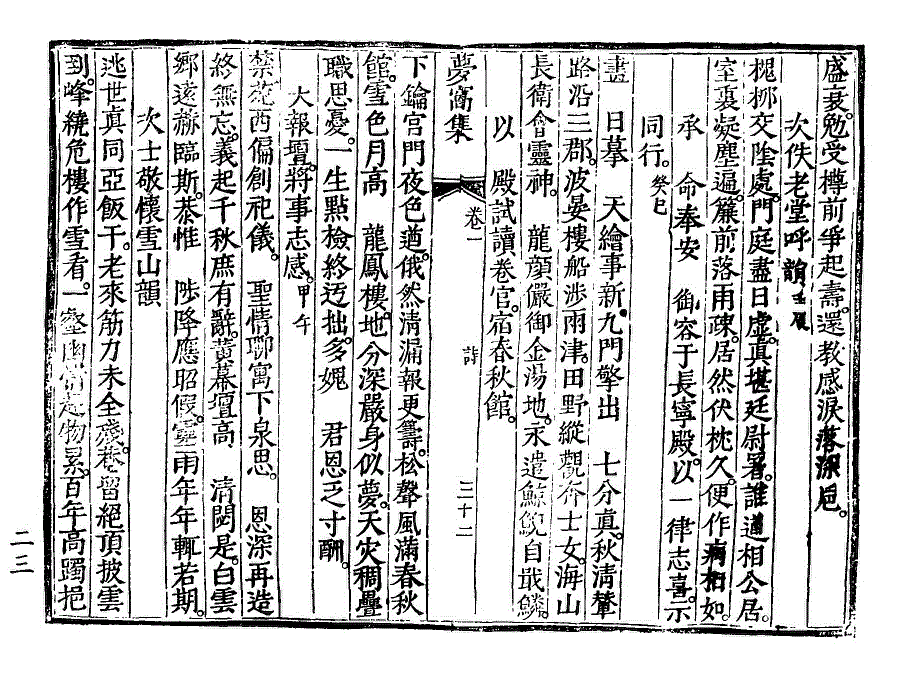 盛衰。勉受樽前爭起壽。還教感淚落深巵。
次佚老堂呼韻
槐柳交陰處。門庭盡日虛。眞堪廷尉署。誰道相公居。
室裏凝塵遍。簾前落雨疎。居然伏枕久。便作病相如。
承 命奉安 御容于長寧殿。以一律志喜。示
同行。癸巳
畫日摹 天繪事新。九門擎出 七分眞。秋淸輦
路沿三郡。波晏樓船涉雨津。田野縱觀奔士女。海山
長衛會靈神。 龍顏儼御金湯地。永遣鯨鯢自戢鱗。
以 殿試讀卷官。宿春秋館。
夢窩集 卷一 詩 三十二
下鑰宮門夜色遒。俄然淸漏報更籌。松聲風滿春秋
館。雪色月高 龍鳳樓。地分深嚴身似夢。天灾稠疊
職思憂。一生點檢終迃拙。多媿 君恩乏寸酬。
大報壇。將事志感。甲午
禁菀西偏創祀儀。 聖情聊寓下泉思。 恩深再造
終無忘。義起千秋庶有辭。黃幕壇高 淸閟是。白雲
鄕遠赫臨斯。恭惟 陟降應昭假。靈雨年年輒若期。
次士敬懷雪山韻
逃世眞同亞飯干。老來筋力未全殘。巷留絕頂披雲
到。峰繞危樓作雪看。一壑幽 起物累。百年高躅挹
二三